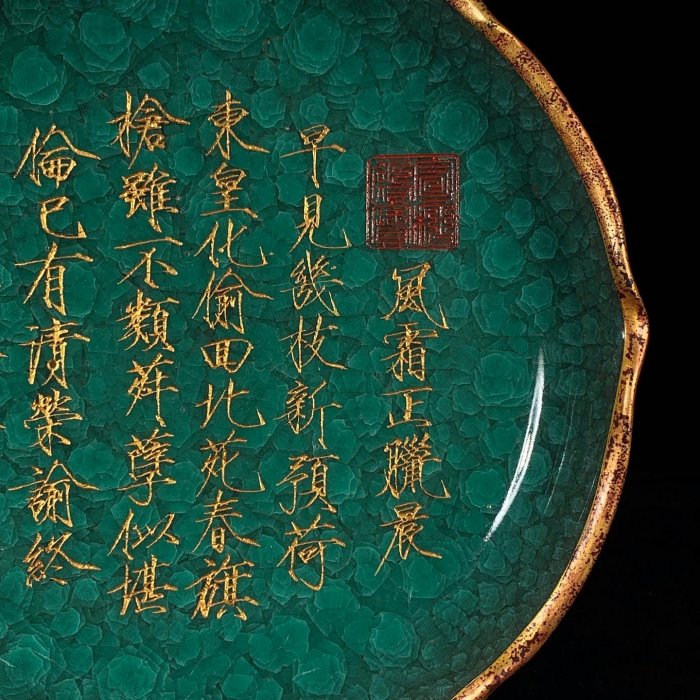 風霜正臘晨
早見幾枝新預荷
東皇化偷回北苑春旗
槍雖不類荈孽似堪
倫已有清榮諭終